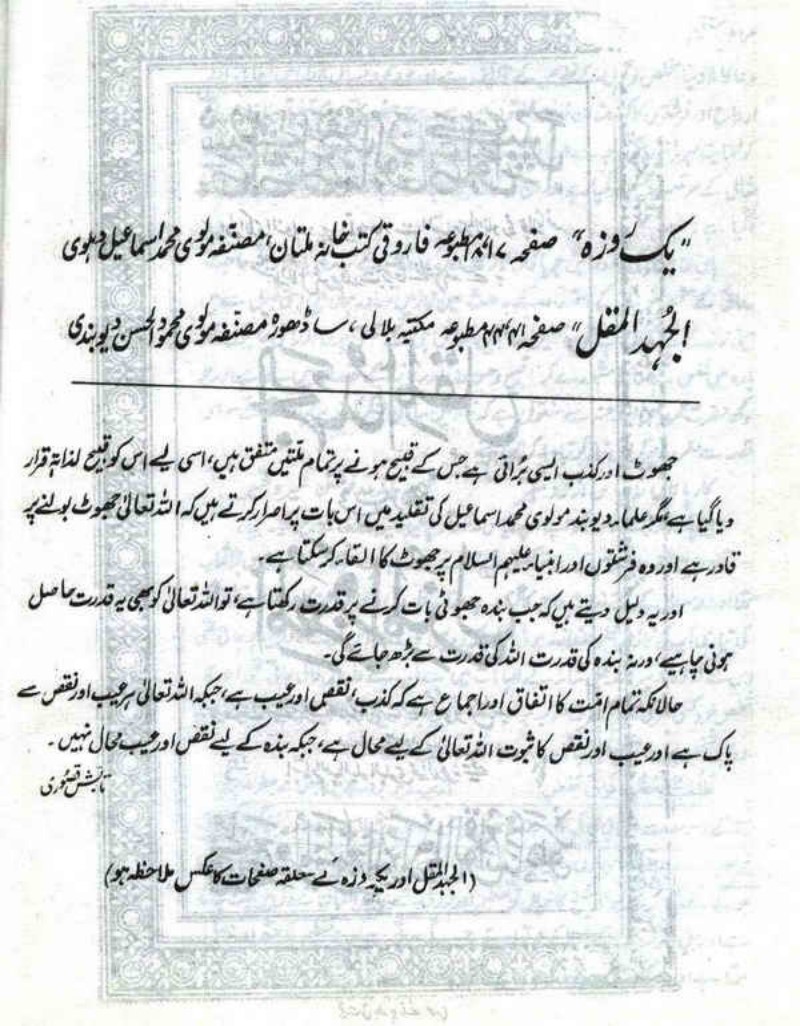 "یک روزہ" صفحہ ۱۷، ۱۸ مطبوعہ فاروقی کتب خانہ ملتان، مصنفہ مولوی محمد اسماعیل دہلوی
الجُہد المقل" صفحہ مطبوعہ مکتبہ بلالی، ساڈھورہ مصنفہ مولوی محمود الحسن دیوبندی
جھوٹ اور کذب ایسی بُرائی ہے جس کے قبیح ہونے پر تمام ملتیں متفق ہیں، اسی لیے اس کو قبیح لذاتہٖ قرار
دیا گیا ہے، مگر علماء دیوبند مولوی محمد اسماعیل کی تقلید میں اس بات پر اصرار کرتے ہیں کہ اللہ تعالیٰ جھوٹ بولنے پر
قادر ہے اور وہ فرشتوں اور انبیاء علیہم السلام پر جھوٹ کا القاء کر سکتا ہے۔
اور یہ دلیل دیتے ہیں کہ جب بندہ جھوٹی بات کرنے پر قدرت رکھتا ہے، تو اللہ تعالیٰ کو بھی یہ قدرت حاصل
ہونی چاہیے، ورنہ بندہ کی قدرت اللہ کی قدرت سے بڑھ جائے گی۔
حالانکہ تمام امّت کا اتفاق اور اجماع ہے کہ کذب، نقص اور عیب ہے، جبکہ اللہ تعالیٰ ہر عیب اور نقص سے
پاک ہے اور عیب اور نقص کا ثبوت اللہ تعالیٰ کے لیے محال ہے، جبکہ بندہ کے لیے نقص اور عیب محال نہیں۔
تابش قصوری
(الجہد المقل اور یکروزہ کے متعلقہ صفحات کا عکس ملاحظہ ہو)